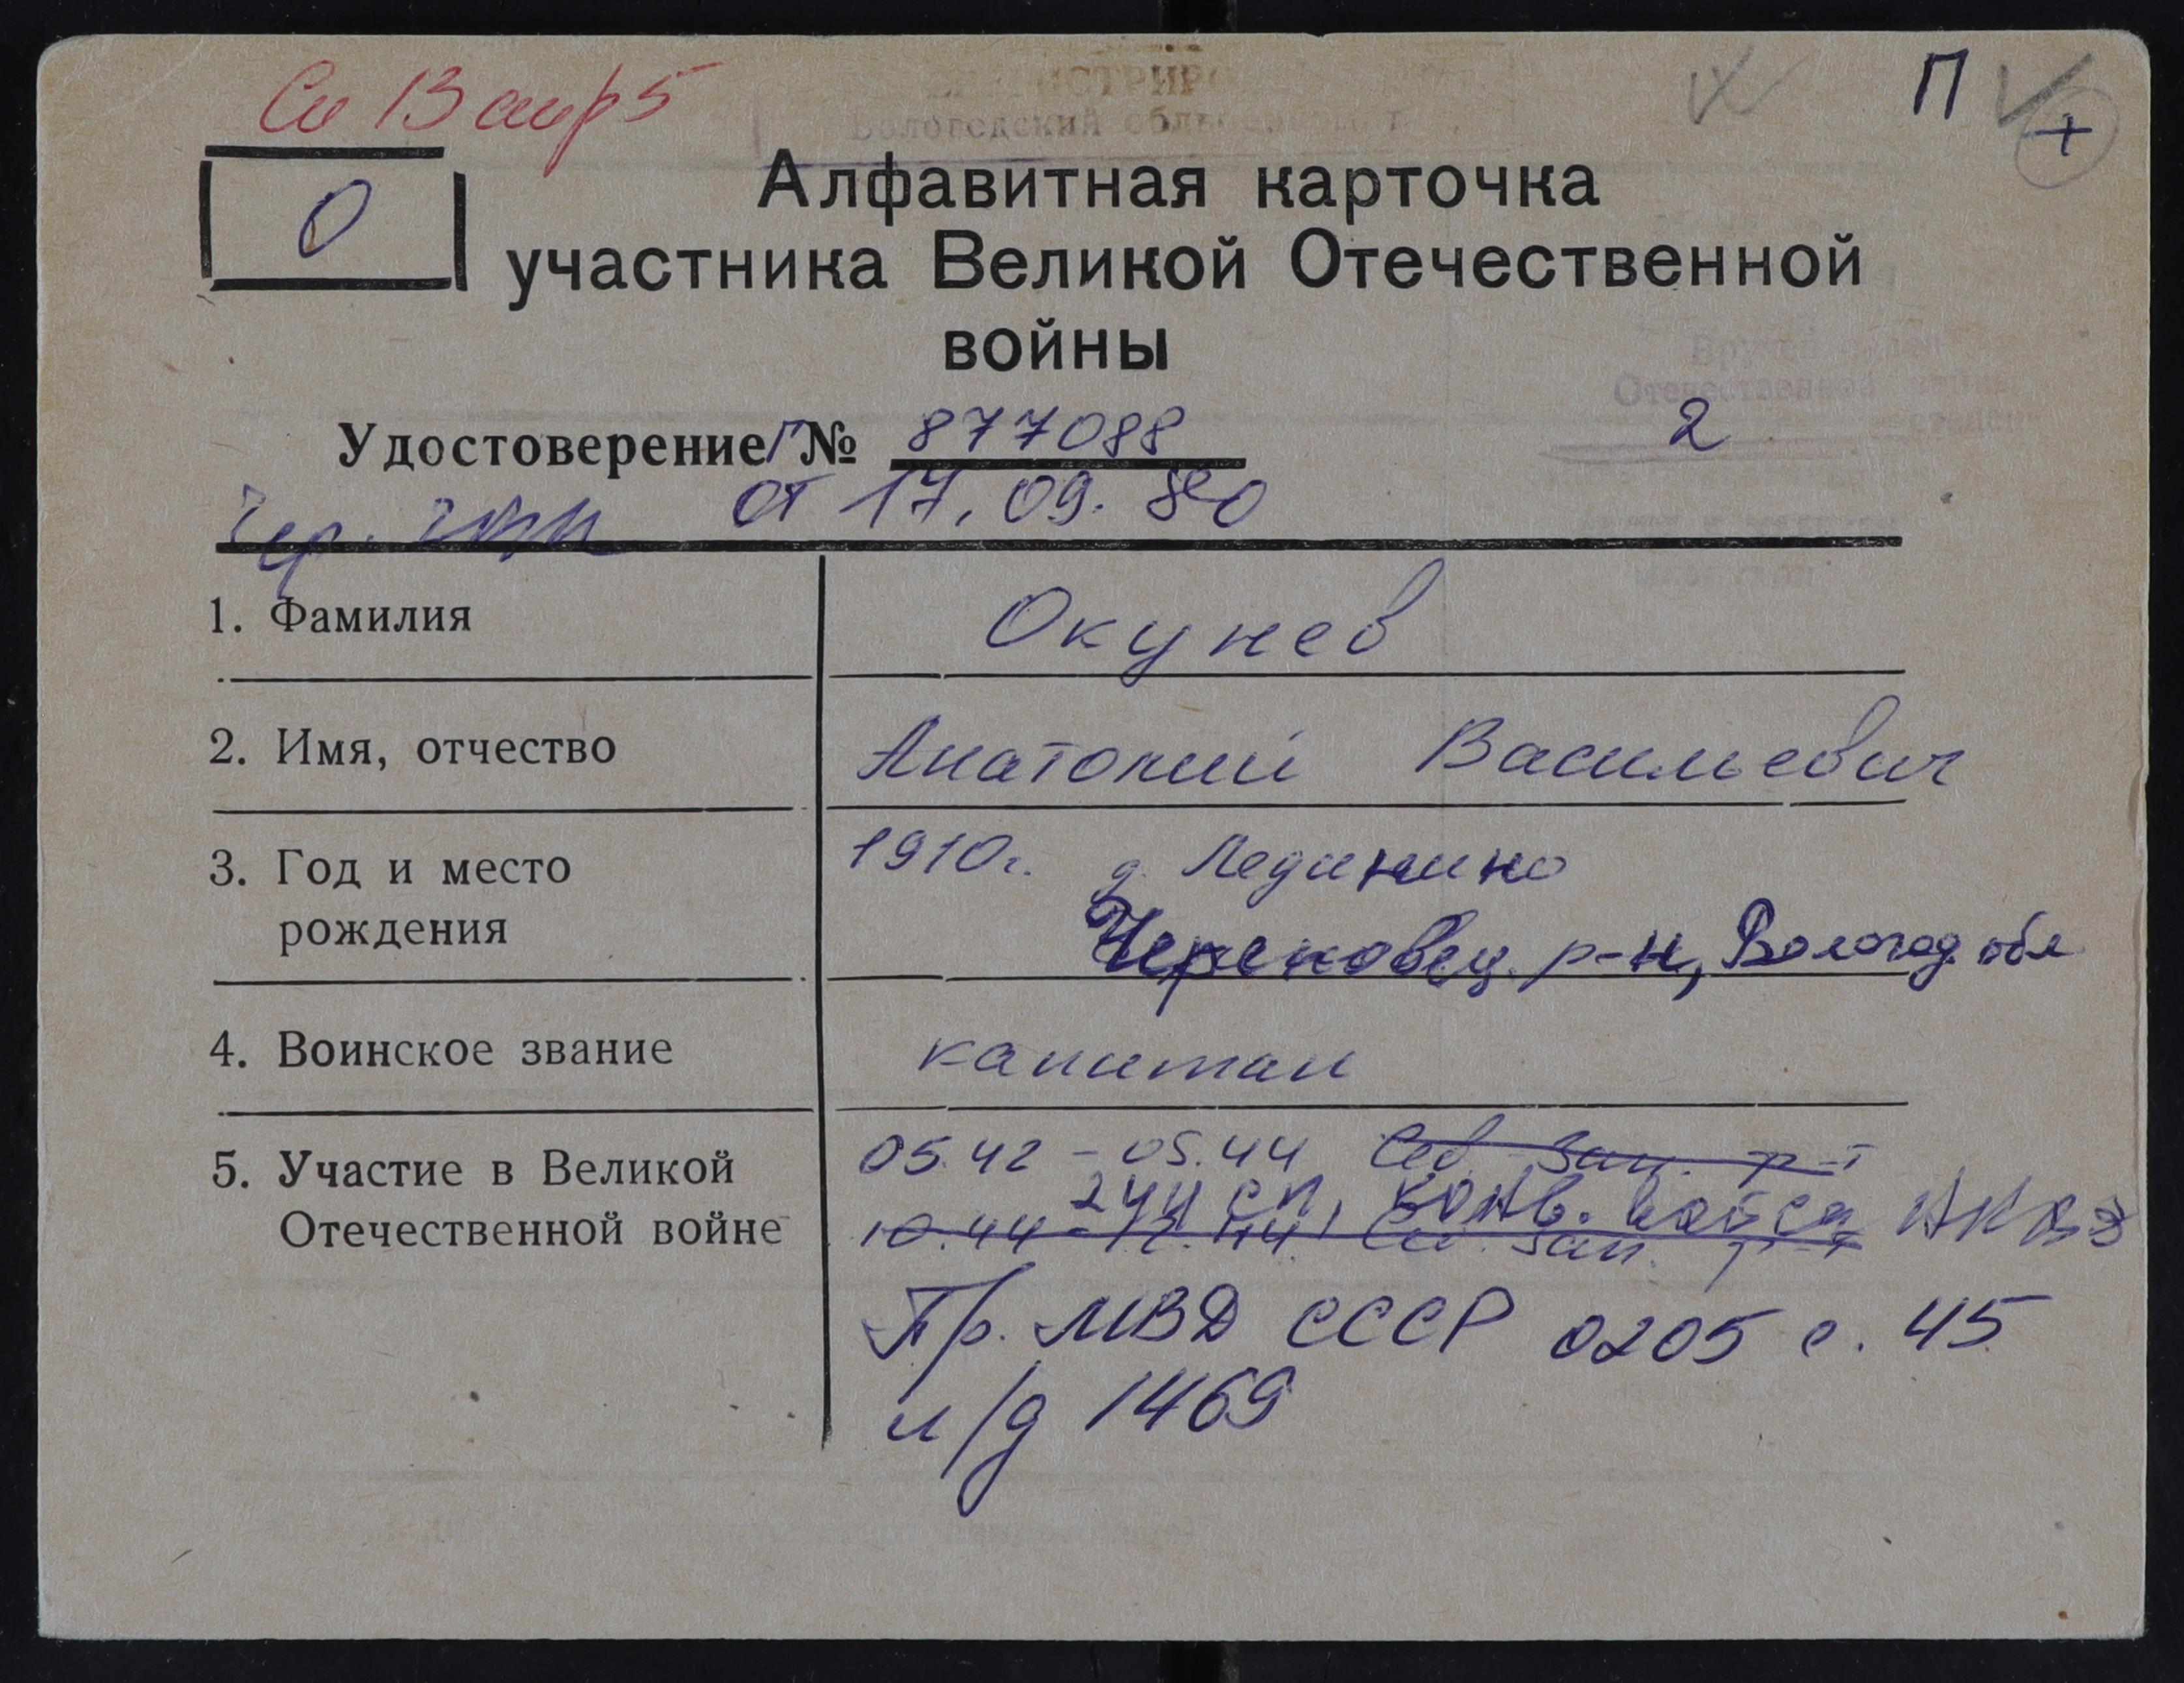 П
+
О
Алфавитная карточка
участника Великой Отечественной
войны
Удостоверение Г № 877088
2
от 17.09.80
1. Фамилия Окунев
2. Имя, отчество Анатолий Васильевич
3. Год и место 1910г. д. Лединино
рождения Череповец. р-н, Вологод обл
4. Воинское звание капитан
5. Участие в Великой 05.42 - 05.44 Сев. Зап. ф-т
244 сп, конв. войса НКВД
Отечественной войне 10.44 - 12.44 Сев. Зап. ф-т
Пр. МВД СССР 0205 с. 45
л/д 1469